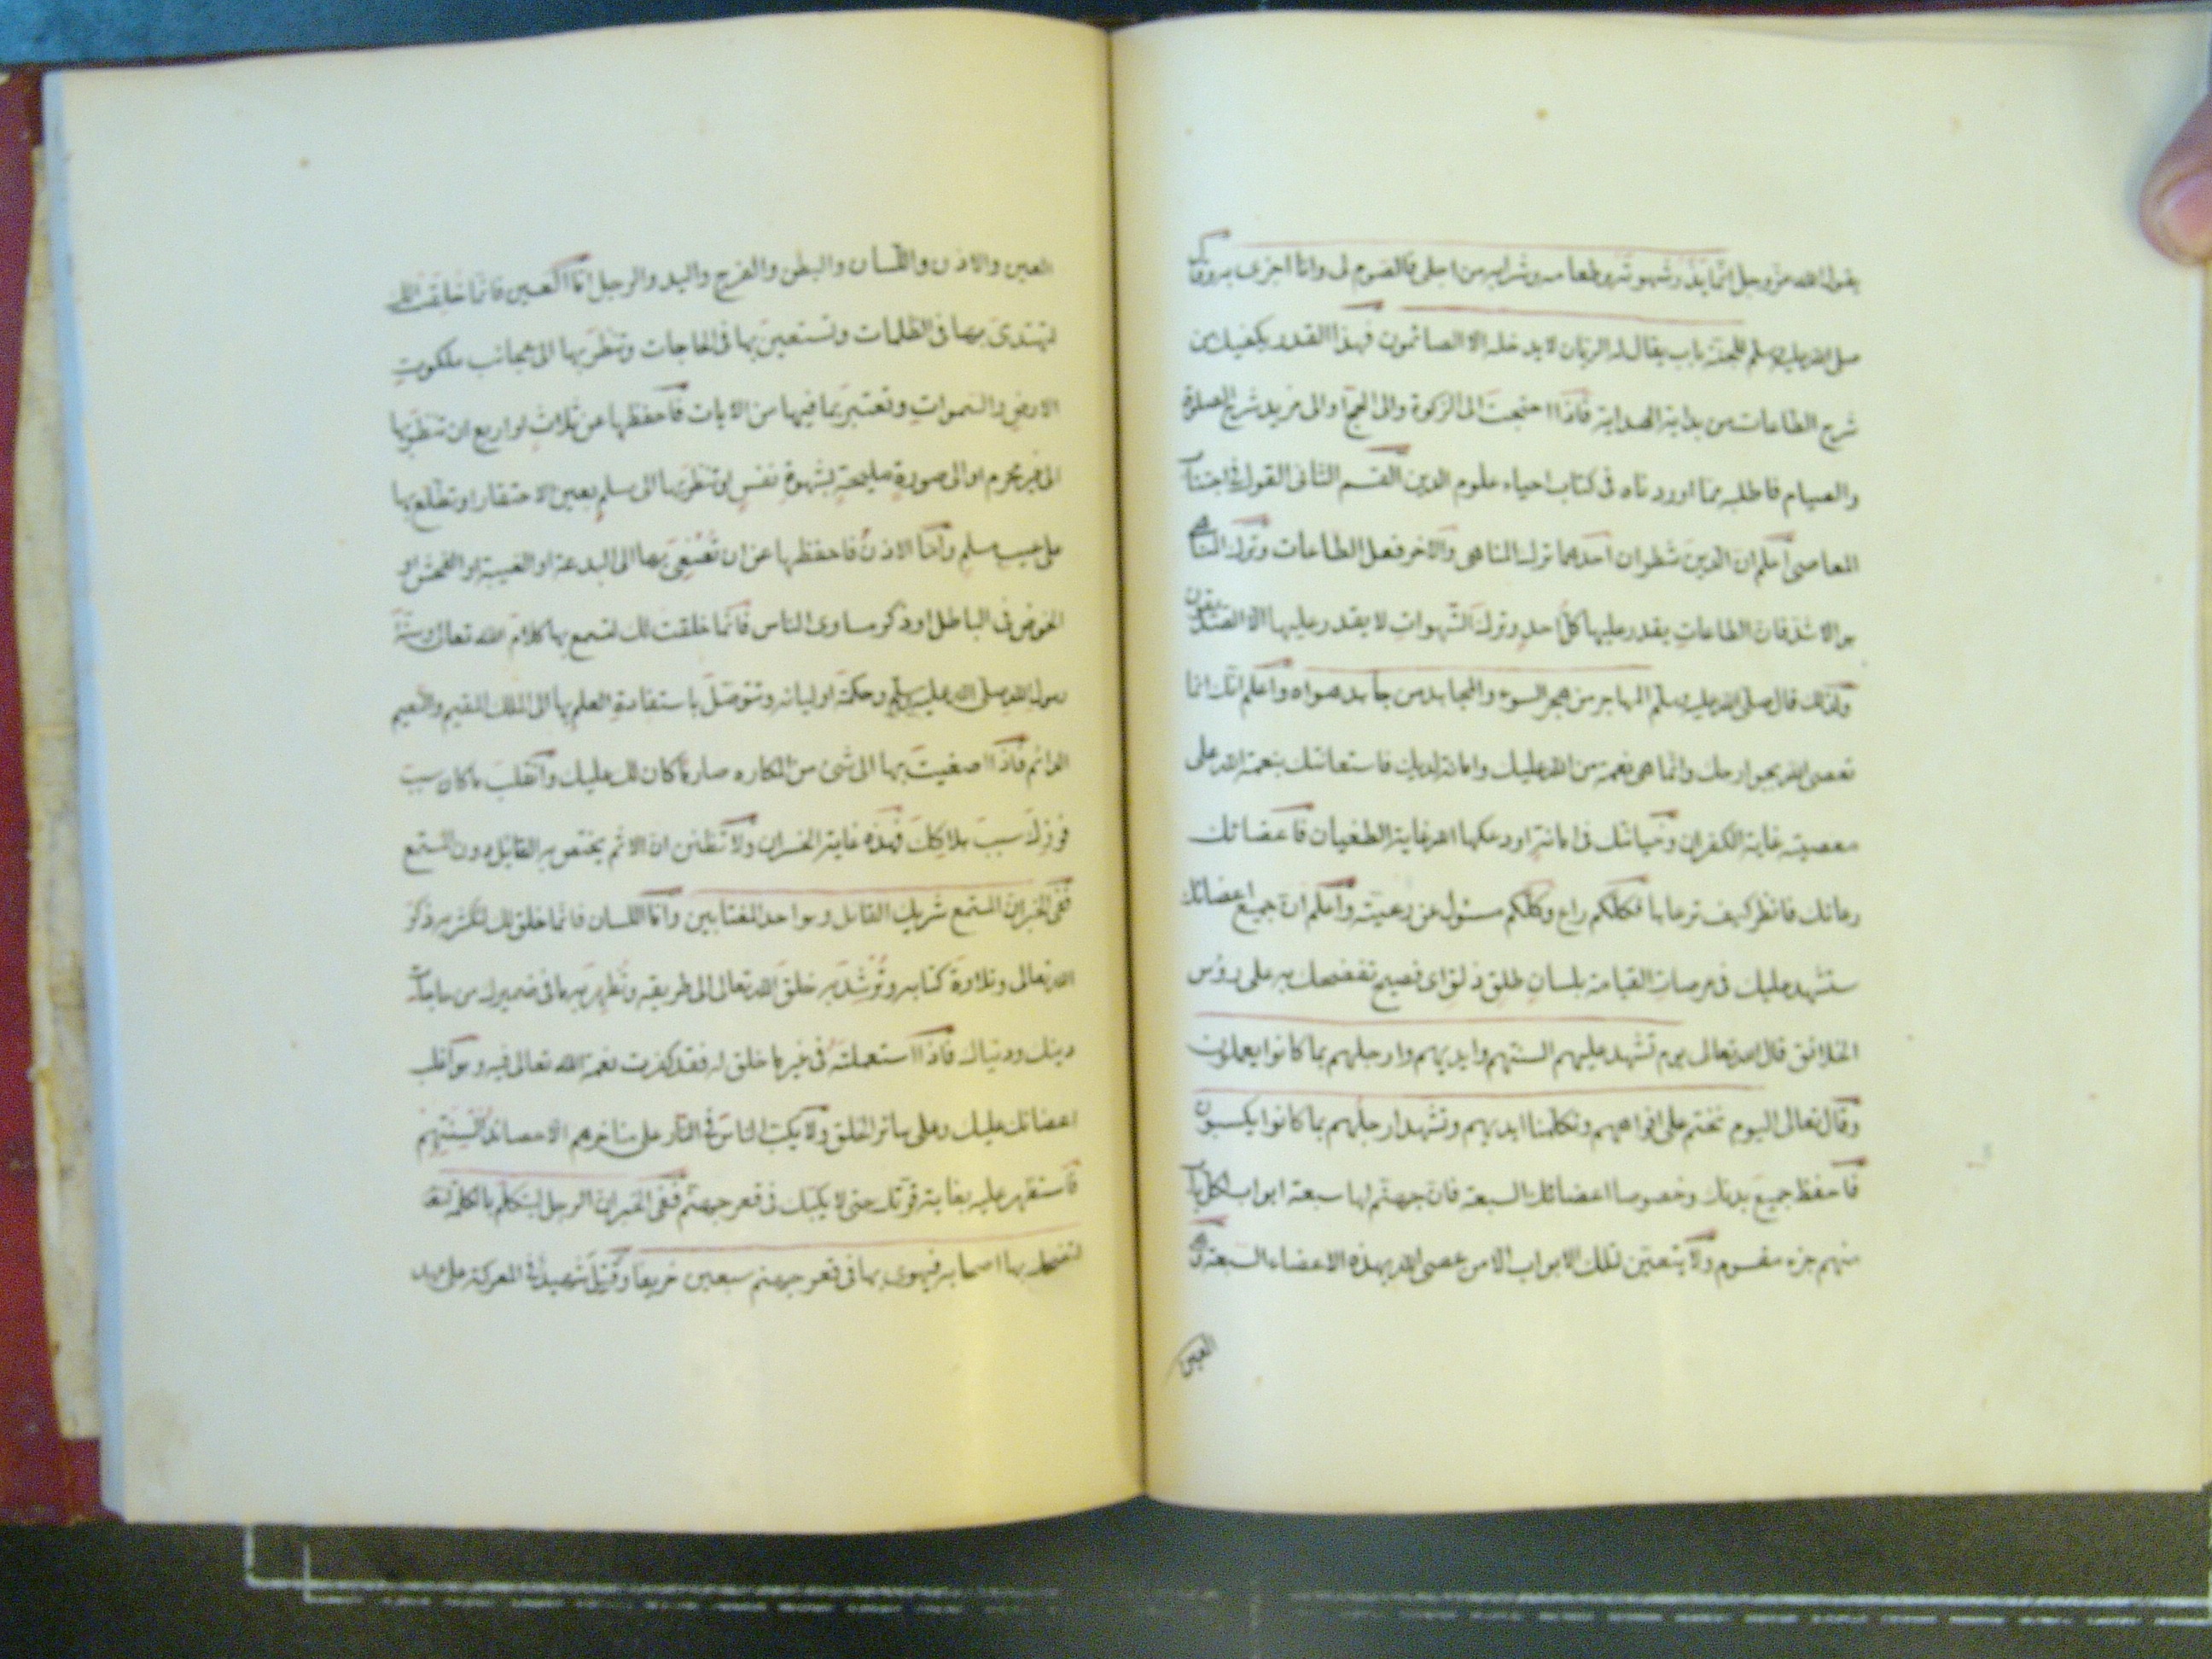 يقول الله عز وجل انما يذر شهوته وطعامه وشرابه من اجلى فالصوم لى وانا اجزى به وقال
صلى الله عليه وسلم للجنة باب يقال له الريان لا يدخله الا الصائمون فهذا القدر يكفيك من
شرح الطاعات من بداية الهداية فاذا احتجت الى الزكوة والى الحج او الى مزيد شرح الصلوة
والصيام فاطلبه مما اوردناه فى كتاب احياء علوم الدين القسم الثانى القول فى اجتناب
المعاصى اعلم ان الدين شطران احدهما ترك المناهى والاخر فعل الطاعات وترك المناهى
هو الاشد فان الطاعات يقدر عليها كل احد وترك الشهوات لا يقدر عليها الا الصديقون
ولذلك قال صلى الله عليه وسلم المهاجر من هجر السوء والمجاهد من جاهد هواه واعلم انك انما
تعصى الله بجوارحك وانما هى نعمة من الله عليك وامانة لديك فاستعانتك بنعمة الله على
معصيته غاية الكفران وخيانتك فى امانة اودعكها الله غاية الطغيان فاعضائك
رعاتك فانظر كيف ترعاها فكلكم راع وكلكم مسئول عن رعيته واعلم ان جميع اعضائك
ستشهد عليك فى عرصات القيامة بلسان طلق ذلق اى فصيح تفضحك به على رؤس
الخلائق قال الله تعالى يوم تشهد عليهم السنتهم وايديهم وارجلهم بما كانوا يعملون
وقال تعالى اليوم نختم على افواههم وتكلمنا ايديهم وتشهد ارجلهم بما كانوا يكسبون
فاحفظ جميع بدنك وخصوصا اعضائك السبعة فان جهنم لها سبعة ابواب لكل باب
منهم جزء مقسوم ولا يتعين تلك الابواب الا من عصى الله بهذه الاعضاء السبعة وهى
العين
العين والاذن واللسان والبطن والفرج واليد والرجل اما العين فانما خلقت لك
لتهتدى بها فى الظلمات وتستعين بها فى الحاجات وتنظر بها الى عجائب ملكوت
الارض والسموات وتعتبر بما فيها من الايات فاحفظها عن ثلاث او اربع ان تنظر بها
الى غير محرم او الى صورة مليحة بشهوة نفس او تنظر بها الى مسلم بعين الاحتقار او تطلع بها
على عيب مسلم واما الاذن فاحفظها عن ان تصغى بها الى البدعة او الغيبة او الفحش او
الخوض فى الباطل او ذكر مساوى الناس فانما خلقت لك لتسمع بها كلام الله تعالى وسنة
رسول الله صلى الله عليه وسلم وحكمة اوليائه وتتوصل باستفادة العلم بها الى الملك المقيم والنعيم
الدائم فاذا اصغيت بها الى شئ من المكاره صار ما كان لك عليك وانقلب ما كان سبب
فوزك سبب هلاكك فهذه غاية الخسران ولا تظنن ان الاثم يختص به القائل دون المستمع
ففى الخبر ان المستمع شريك القائل وهو احد المغتابين واما اللسان فانما خلق لك لتكثر به ذكر
الله تعالى وتلاوة كتابه وترشد به خلق الله تعالى الى طريقه وتظهر به ما فى ضميرك من حاجات
دينك ودنياك فاذا استعملته فى غير ما خلق له فقد كفرت نعمة الله تعالى فيه وهو اغلب
اعضائك عليك وعلى سائر الخلق ولا يكب الناس فى النار على مناخرهم الا حصائد السنتهم
فاستظهر عليه بغاية قوتك حتى لا يكبك فى قعر جهنم ففى الخبر ان الرجل ليتكلم بالكلمة
بها اصحابه فيهوى بها فى قعر جهنم سبعين خريفا وقتل شهيد فى المعركة على عهد